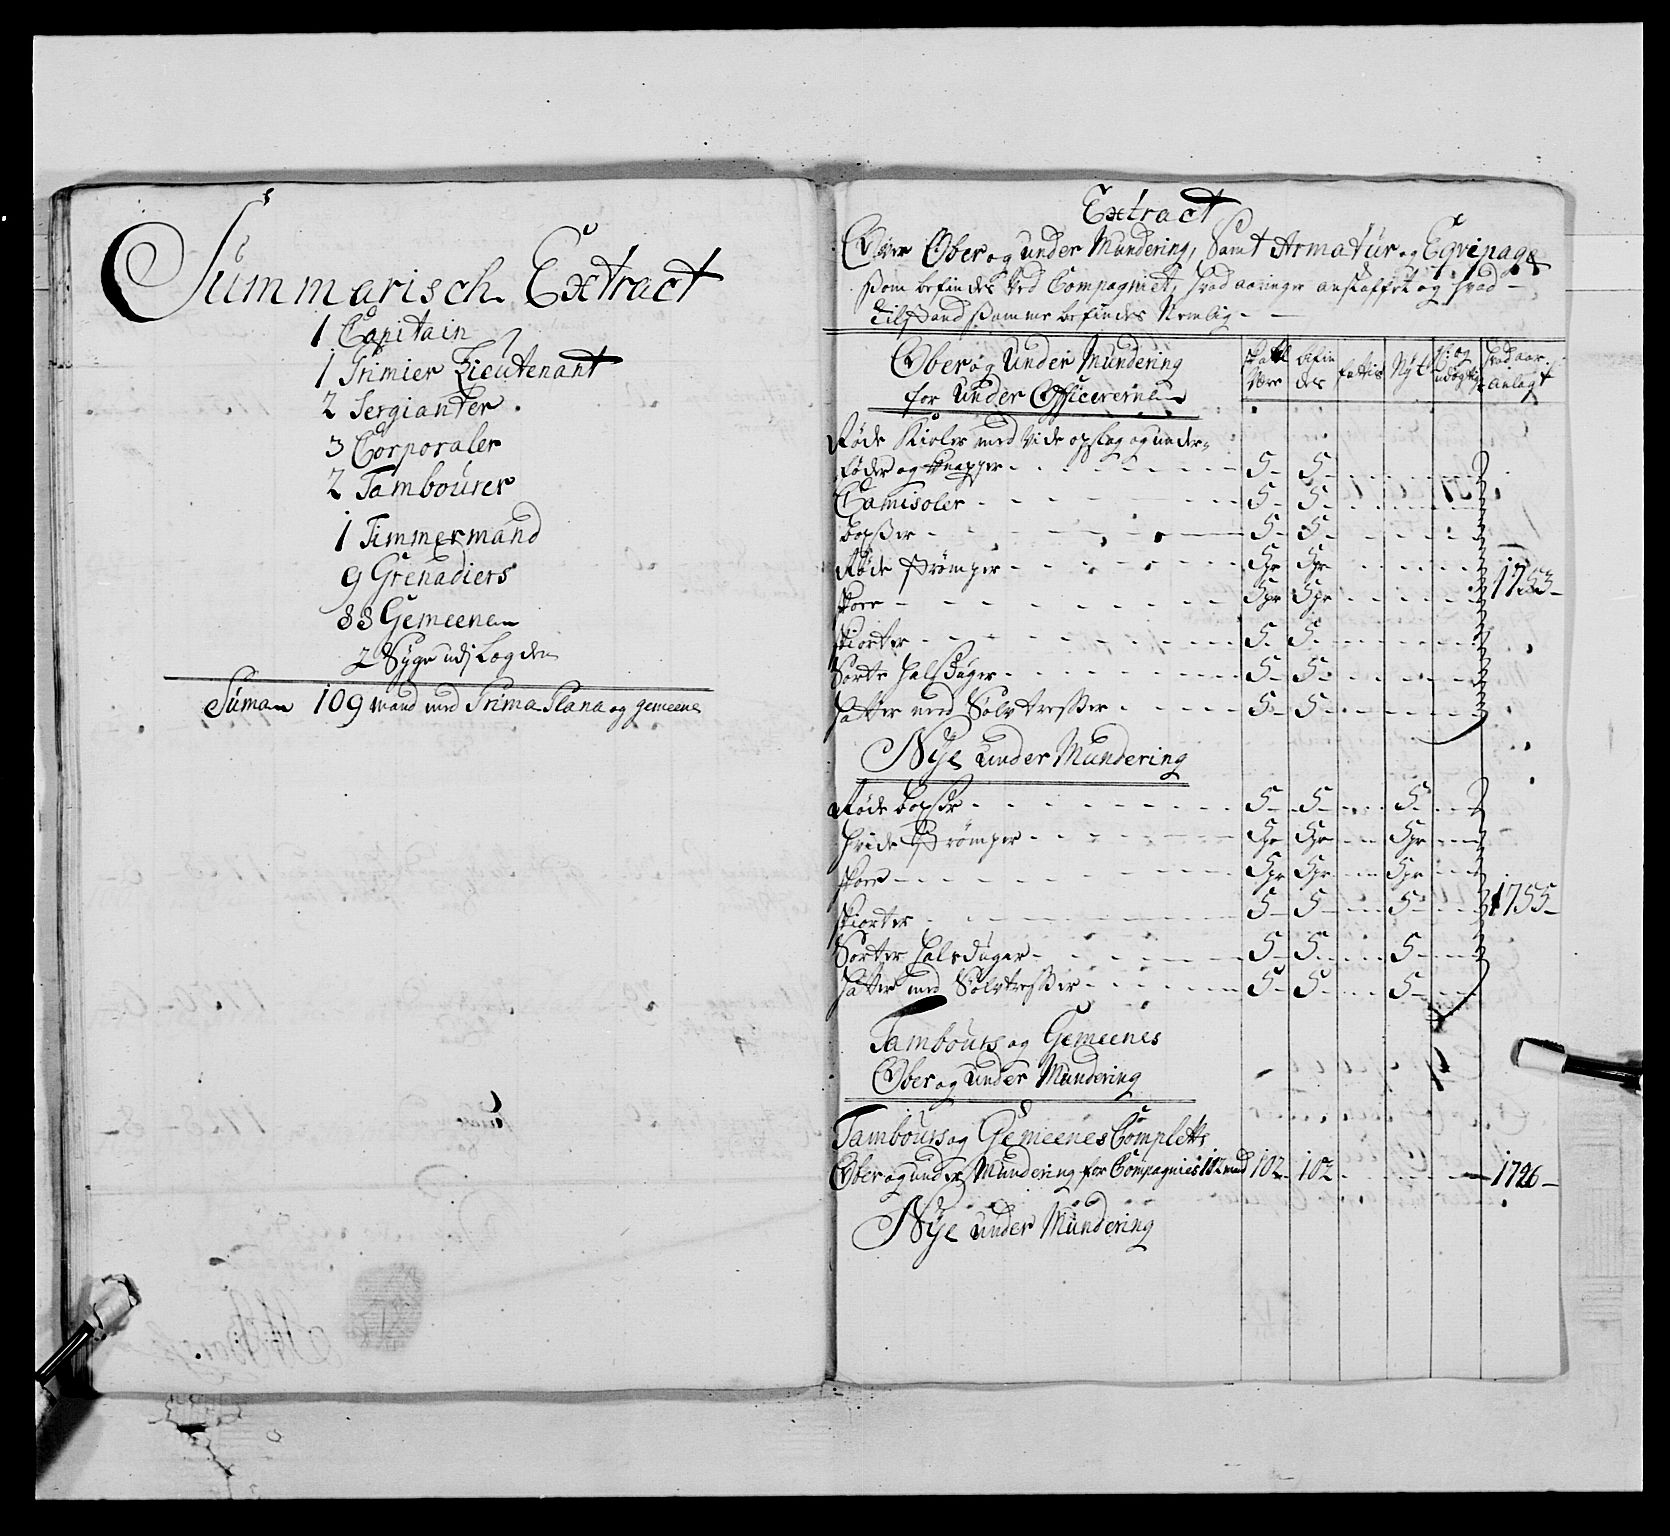 Summarisch Extract
1 Capitain
1 Primier Lieutenant
2 Sergianter
3 Corporaler
2 Tambourer
1 Timmermand
9 Grenadiers
88 Gemeene
2 Syge udj Lægden
Suma 109 mand med Prima Plana og gemeene
Extract
Over Ober og under Mundering, Samt Armatur og Eqvipage
som befindes ved Compagniet, hvad aaringer anskaffet og hvad
tilstand samme befindes Nemlig
Ober og Under Mundering
for Under Officererne
skall være
befindes
fattis
Nÿt
hvad aar anlagt
Røde Kioler med Vide opslag og under-
foder og knapper 5 5
Camisoler 5 5
boxser 5 5
Røde strømper 5pr 5pr 1753
skoe 5pr 5pr
skiorter 5 5
Sorte halsduger 5 5
hatter med Sølvtresser 5 5
Nÿe under Mundering
Røde boxser 5 5 5
hvide strømper 5pr 5pr 5pr
skoe 5pr 5pr 5pr
skiorter 5 5 5 1755
Sorter halsduger 5 5 5
hatter med Sølvtresser 5 5 5
Tambours og Gemeenes
Ober og under Mundering
Tambours og Gemeenes Complette
Ober og under Mundering for Compagniets 102 mand 102 102 1726
Nÿe under Mundering